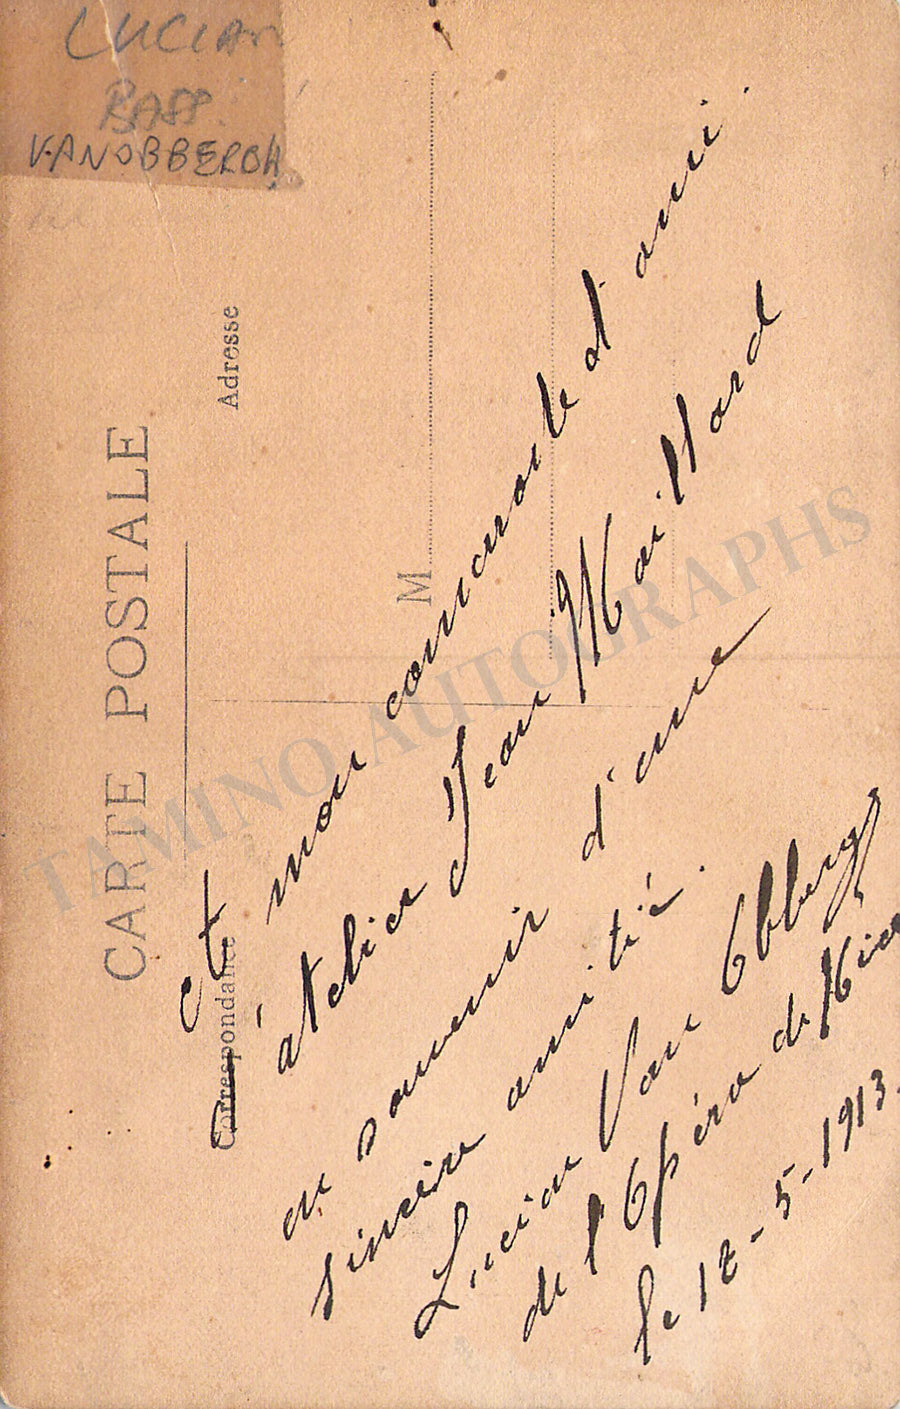 LUCIAN
BASS.
VANOBBERGH
CARTE POSTALE
Correspondance
Adresse
M
TAMINO AUTOGRAPHS
et mon camarade et ami.
D'atelier Jean Maillard
en souvenir d'une
sincère amitié.
Lucien Van Obbergh
de l'Opéra de Nice
le 12-5-1913.